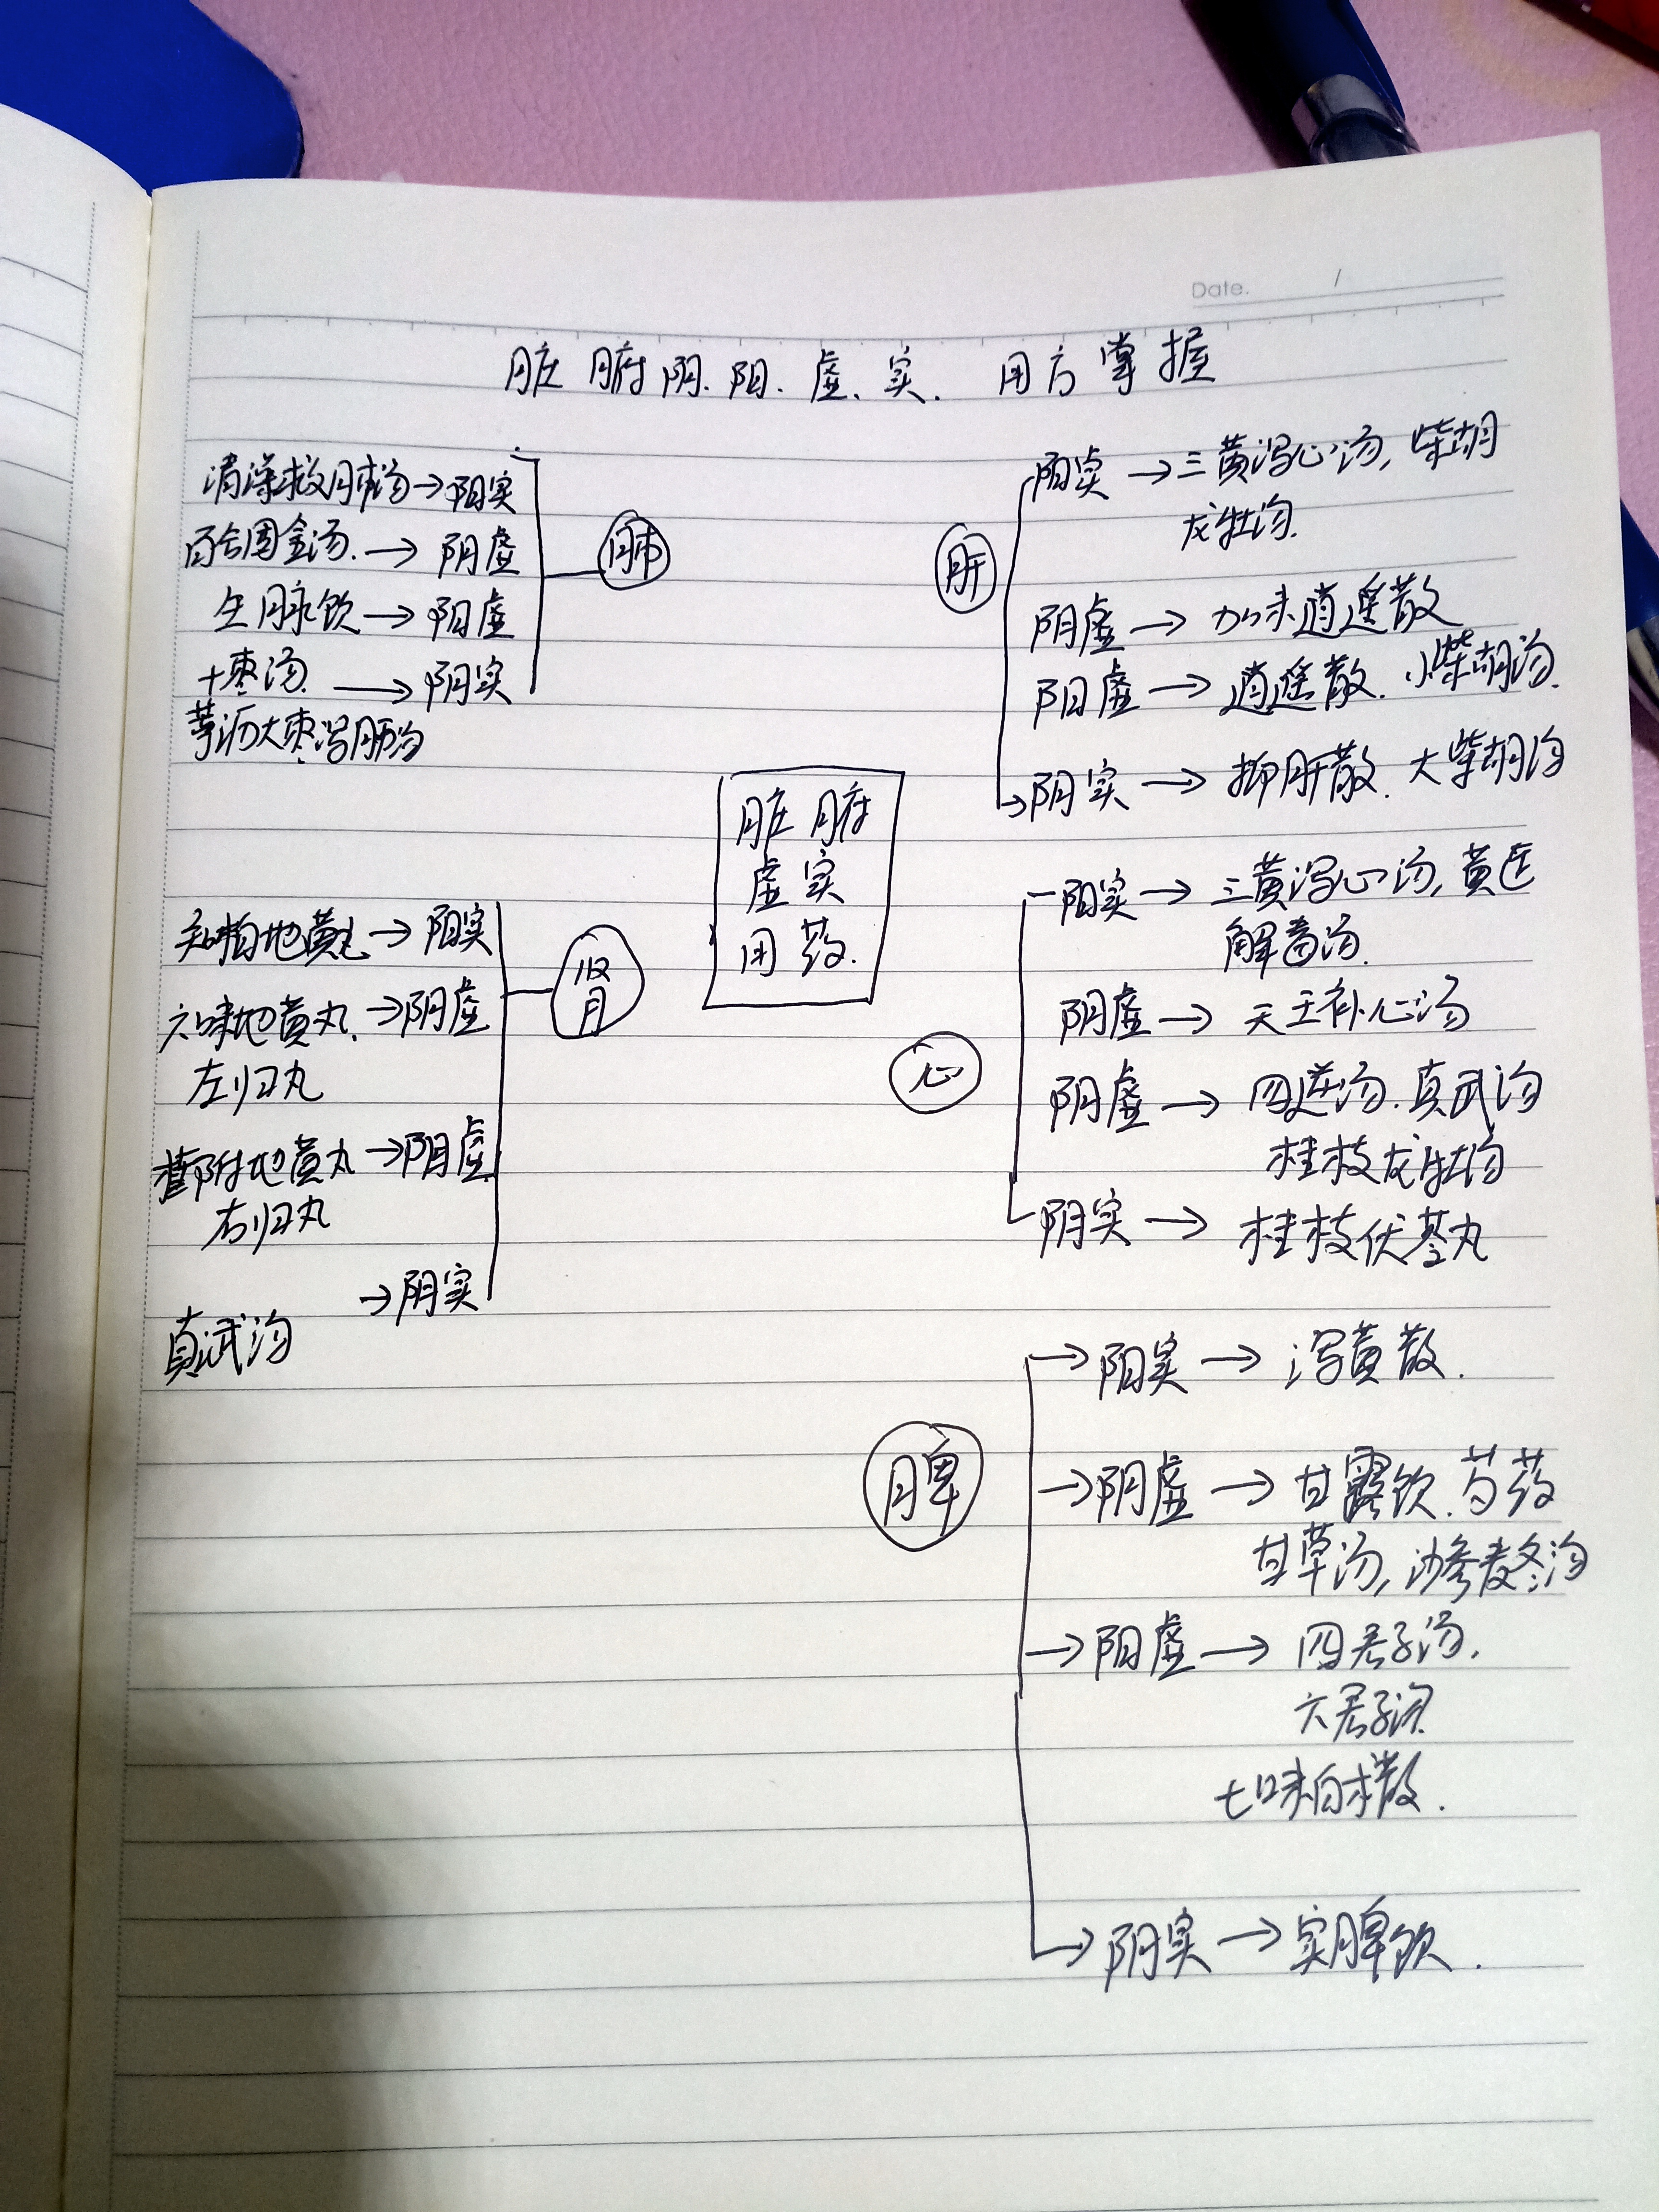 Date. /
脏腑阴.阳.虚.实. 用方掌握
清燥救肺汤→阳实
百合固金汤.→阴虚
生脉饮→阳虚
十枣汤.→阴实
葶沥大枣泻肺汤
肺
肝
阳实→三黄泻心汤,柴胡
龙牡汤.
阴虚→加味逍遥散
阳虚→逍遥散.小柴胡汤.
阴实→抑肝散.大柴胡汤
脏腑
虚实
用药.
知柏地黄丸→阳实
六味地黄丸.→阴虚
左归丸
桂附地黄丸→阴虚
右归丸
→阴实
真武汤
肾
心
阳实→三黄泻心汤,黄连
解毒汤.
阴虚→天王补心汤
阴虚→四逆汤.真武汤
桂枝龙牡汤
阴实→桂枝伏苓丸
脾
→阳实→泻黄散.
→阴虚→甘露饮.芍药
甘草汤,沙参麦冬汤
→阳虚→四君子汤.
六君子汤
七味白术散.
→阴实→实脾饮.